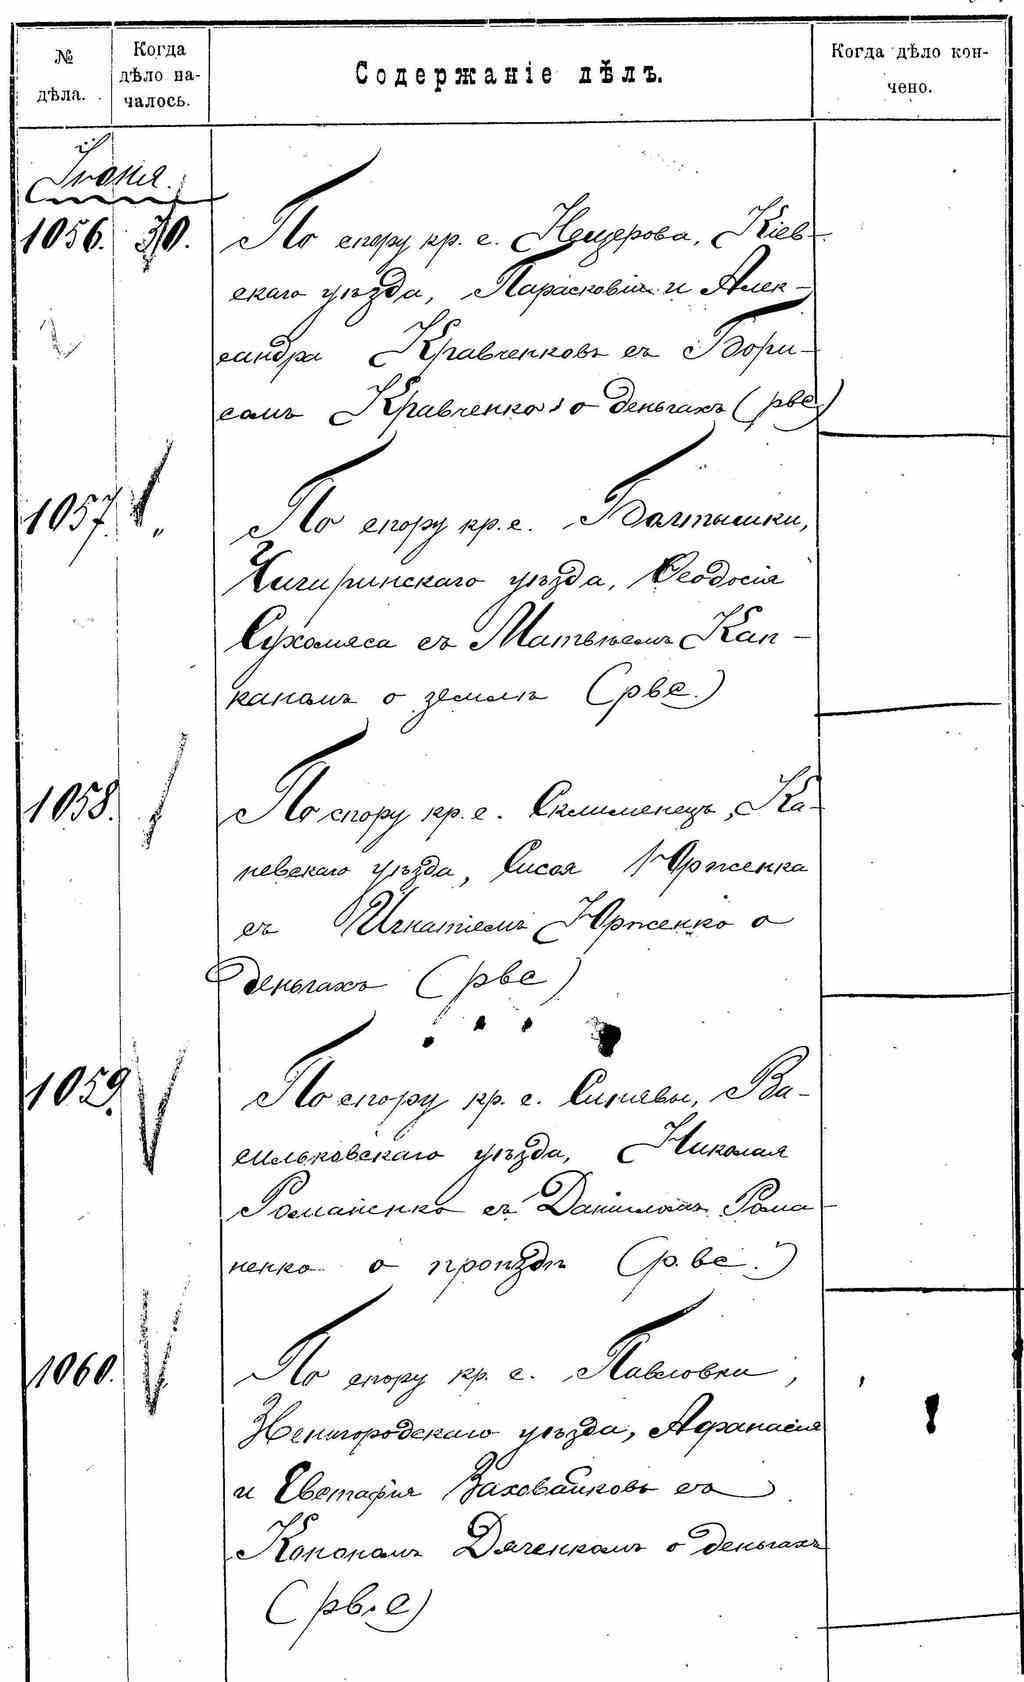 № дѣла.
Когда дѣло началось.
Содержаніе дѣлъ.
Когда дѣло кончено.
Іюня.
1056. 30. По спору кр. с. Нещерова, Кіев-
скаго уѣзда, Парасковіи и Алек-
сандра Кравченковъ съ Бори-
сомъ Кравченко о деньгахъ (рвс.)
1057. „ По спору кр. с. Балтышки,
Чигиринскаго уѣзда, Ѳеодосія
Сухомяса съ Матвѣемъ Кап-
каномъ о землѣ (рвс.)
1058. По спору кр. с. Склименецъ, Ка-
невскаго уѣзда, Сисоя Юрженка
съ Игнатіемъ Юрженко о
деньгахъ (рвс)
1059. По спору кр. с. Синявы, Ва-
сильковскаго уѣзда, Николая
Романенко съ Даніиломъ Рома-
ненко о проѣздѣ (р.вс.)
1060. По спору кр. с. Павловки,
Звенигородскаго уѣзда, Афанасія
и Евстафія Заховайковъ съ
Конономъ Дяченкомъ о деньгахъ
(рв.с)